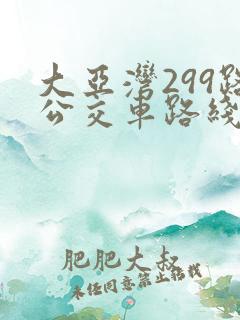 大亚湾299路
公交车路线
肥肥大叔
未经同意禁止转载